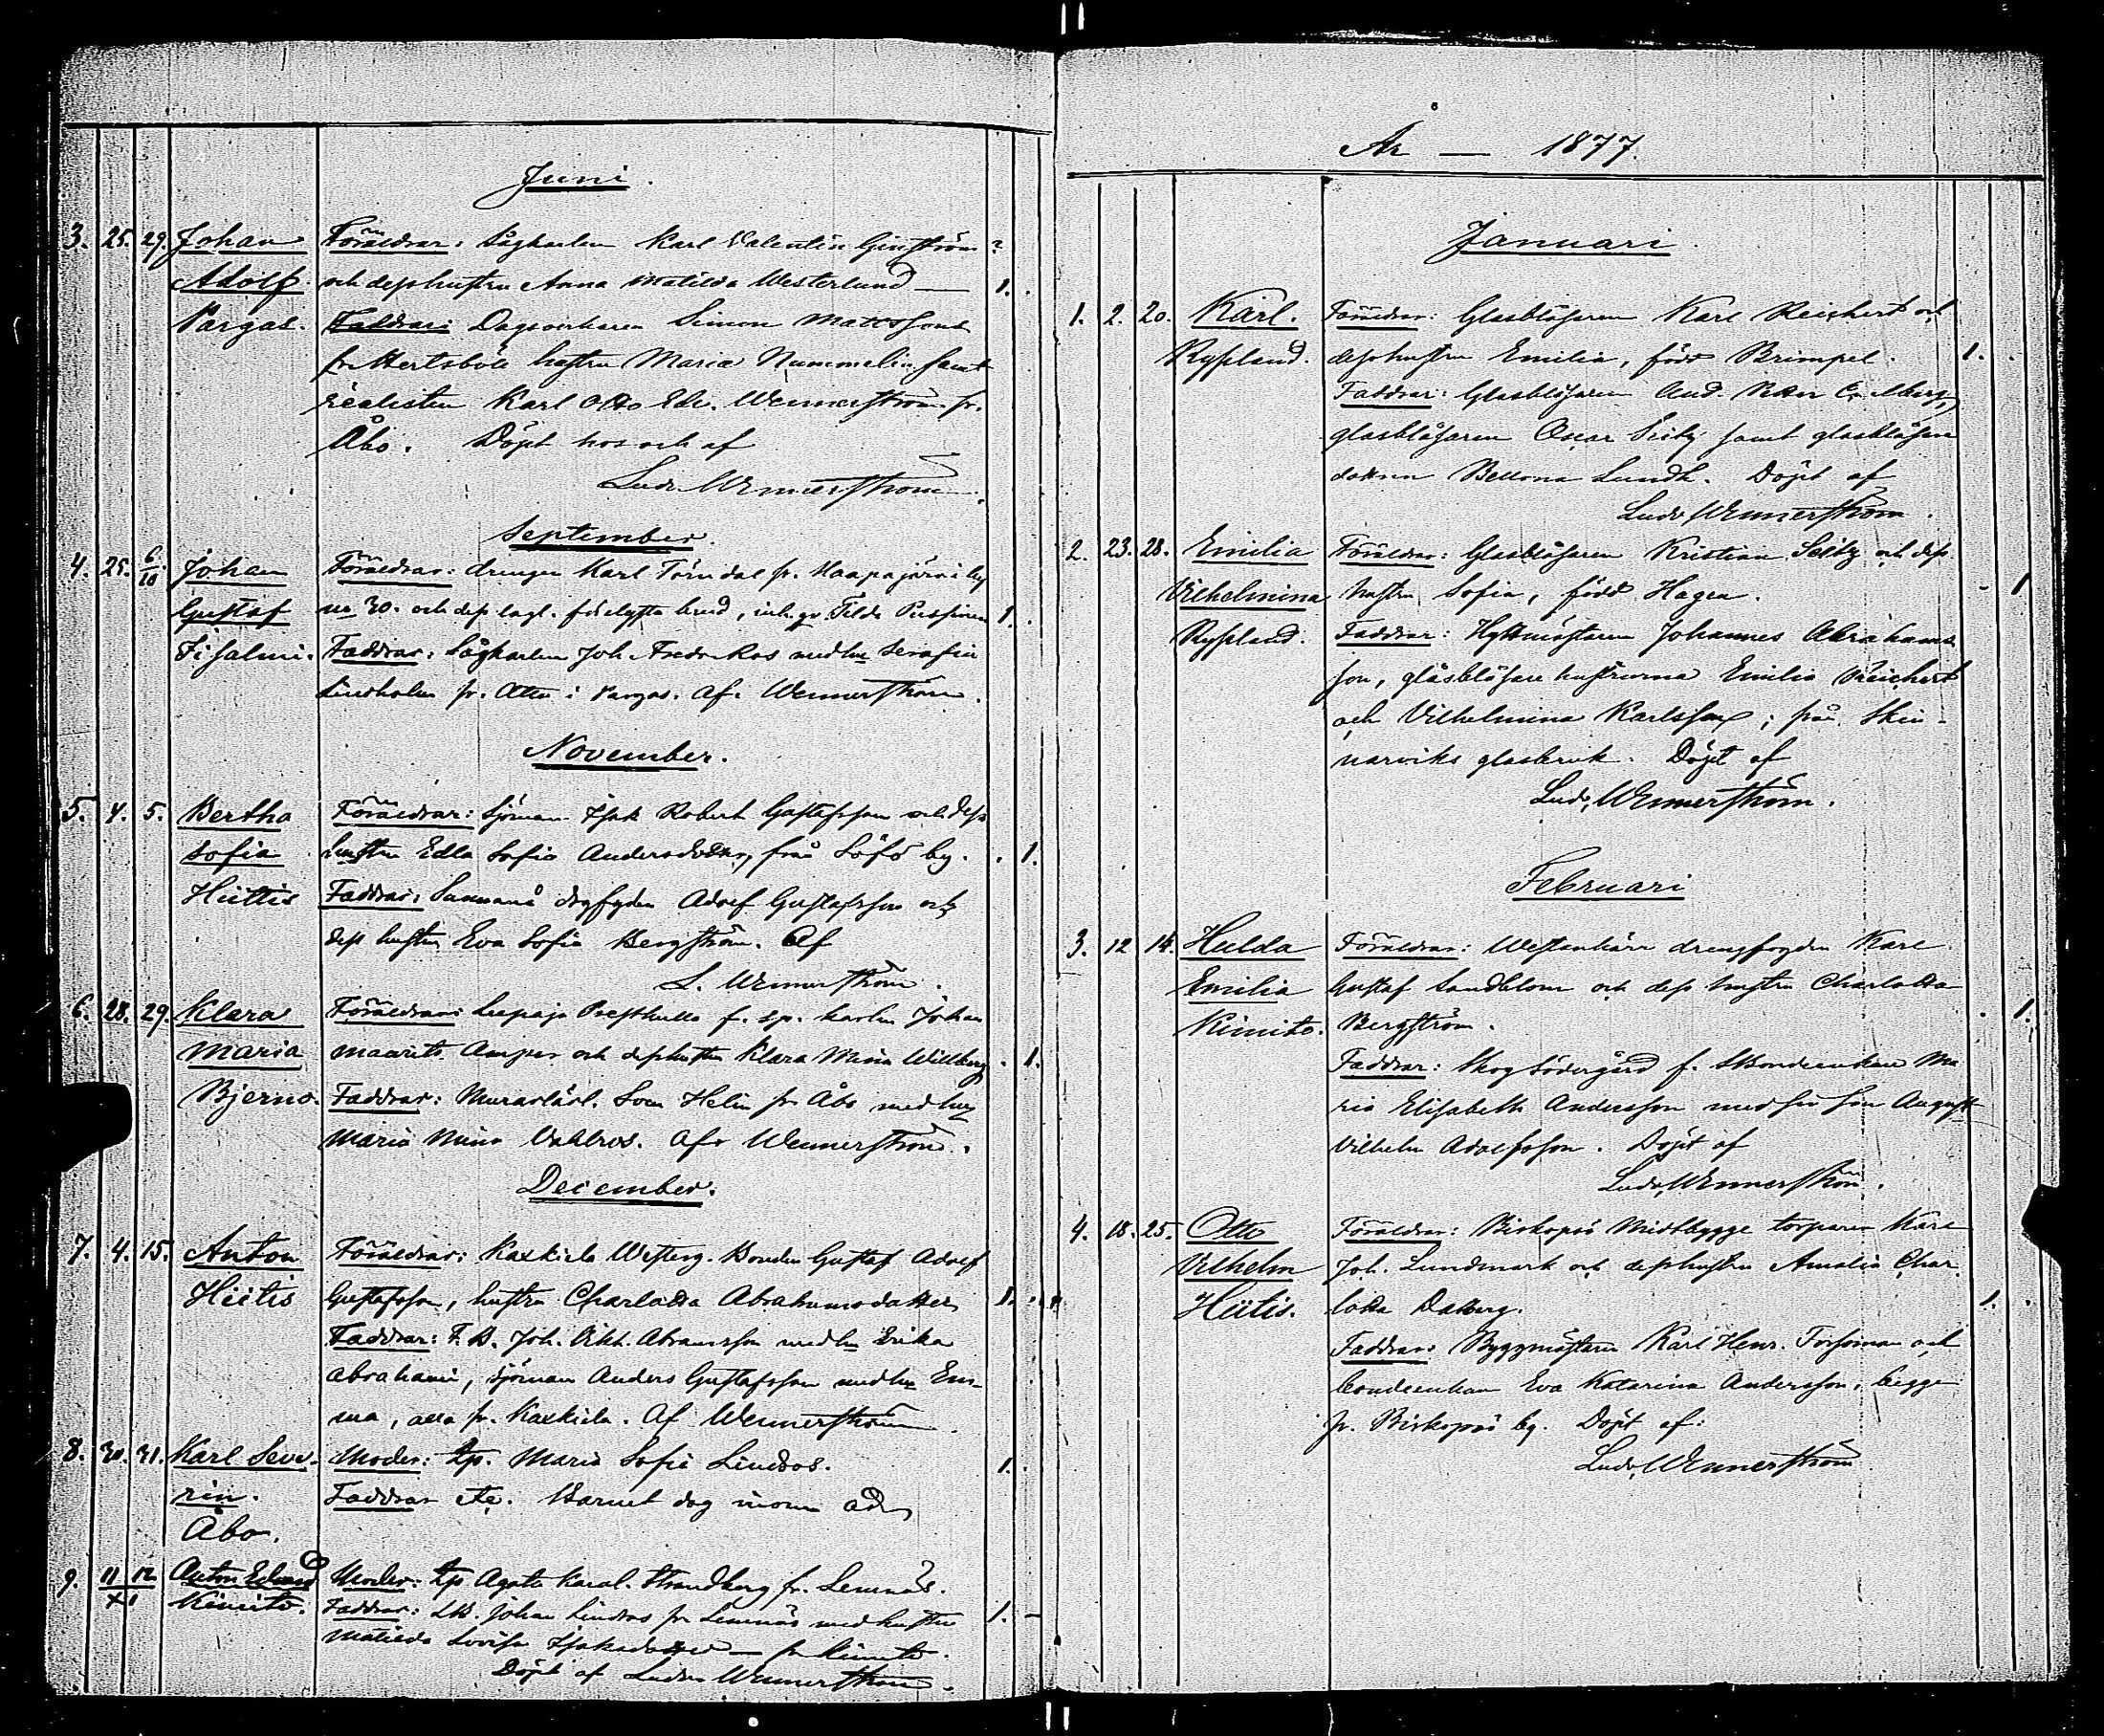 Juni.
3. 25. 29. Johan Föräldrar: Sågkarlen Karl Valentin
Adolf och dess hustru Anna Matilda Westerlund — 1.
Pargas. Faddrar: Dagsverkaren Simon Mattsson
fr. hustru Maria Nummelin samt
Karl Otto Edv. Wennerström fr.
Åbo. Döpt hos och af
Ludv. Wennerström.
September.
4. 25. 6/10 Johan Föräldrar: drengen Karl Törndal fr. Haapajärvi by
Gustaf no 30. och dess lagl. brud, Tilda 1.
Iisalmi. Faddrar: Sågkarlen Joh. Fredr. Ros med hu Serafia
Lindholm fr. Attu i Pargas. Af Wennerström.
November.
5. 4. 5. Bertha Föräldrar: Sjöman Isak Robert Gustafsson och dess
Sofia hustru Edla Sofia Andersdotter, från Löfö by. . 1.
Hiittis Faddrar: Adolf Gustafsson och
dess hustru Eva Sofia Bergström. Af
L. Wennerström.
6. 28. 29. Klara Föräldrar: f. karlen Johan
Maria och dess hustru Klara Mina Willberg . 1.
Bjerno. Faddrar: Helin fr. Åbo med hu
Maria Mina Af Wennerström.
December.
7. 4. 15. Anton Föräldrar: Kaxkiela Westerg. Bonden Gustaf Adolf
Hiitis Gustafsson, hustru Charlotta Abrahamsdotter 1.
Faddrar: F. B. Joh. Vikt. Abramsson med hu Erika
Abrahami, sjöman Anders Gustafsson med hu Em-
ma, alla fr. Kaxkiela. Af Wennerström
8. 30. 31. Karl Seve- Moder: Maria Sofia Lindroos. 1.
rin. Faddrar etc. Barnet dog
Åbo.
9. 11 12 Anton Edvard Moder: Agata Karol. Strandberg fr. Lemnäs.
XI Kimito. Faddrar: Johan Lindros fr. Lemnäs med hustru 1. -
Matilda Lovisa Isaksdotter — fr. Kimito.
Döpt af Ludv. Wennerström.
År — 1877.
Januari.
1. 2. 20. Karl. Föräldrar: Glasblåsaren Karl Reichert och
Ryssland. dess hustru Emilia, född Brimpel. 1. .
Faddrar: Glasblåsaren And. Petter
glasblåsaren Oscar Seitz samt glasblåsare
dottren Bellona Lundh. Döpt af
Ludv. Wennerström.
2. 23. 28. Emilia Föräldrar: Glasblåsaren Kristian Seitz och dess
Vilhelmina hustru Sofia, född Hagen. - 1
Ryssland. Faddrar: Hyttmästaren Johannes Abrahams-
son, glasblåsare hustrurna Emilia Reichert
och Vilhelmina Karlsson; från Skin-
narviks glasbruk. Döpt af
Ludv. Wennerström.
Februari
3. 12 14. Hulda Föräldrar: drengfogden Karl
Emilia Gustaf Sandblom och dess hustru Charlotta
Kimito. Bergström. . 1.
Faddrar: Skog Södergård f. Bondeenkan Ma-
ria Elisabeth Andersson med sin son August
Vilhelm Adolfsson. Döpt af
Ludv. Wennerström.
4. 18. 25. Otto Föräldrar: Biskopsö torparen Karl
Vilhelm Joh. Lundmark och dess hustru Amalia Char-
Hiitis. lotta Dalberg. 1. .
Faddrar: Byggmästaren Karl Henr. Forsman och
bondeenkan Eva Katarina Andersson, begge
fr. Biskopsö by. Döpt af:
Ludv. Wennerström